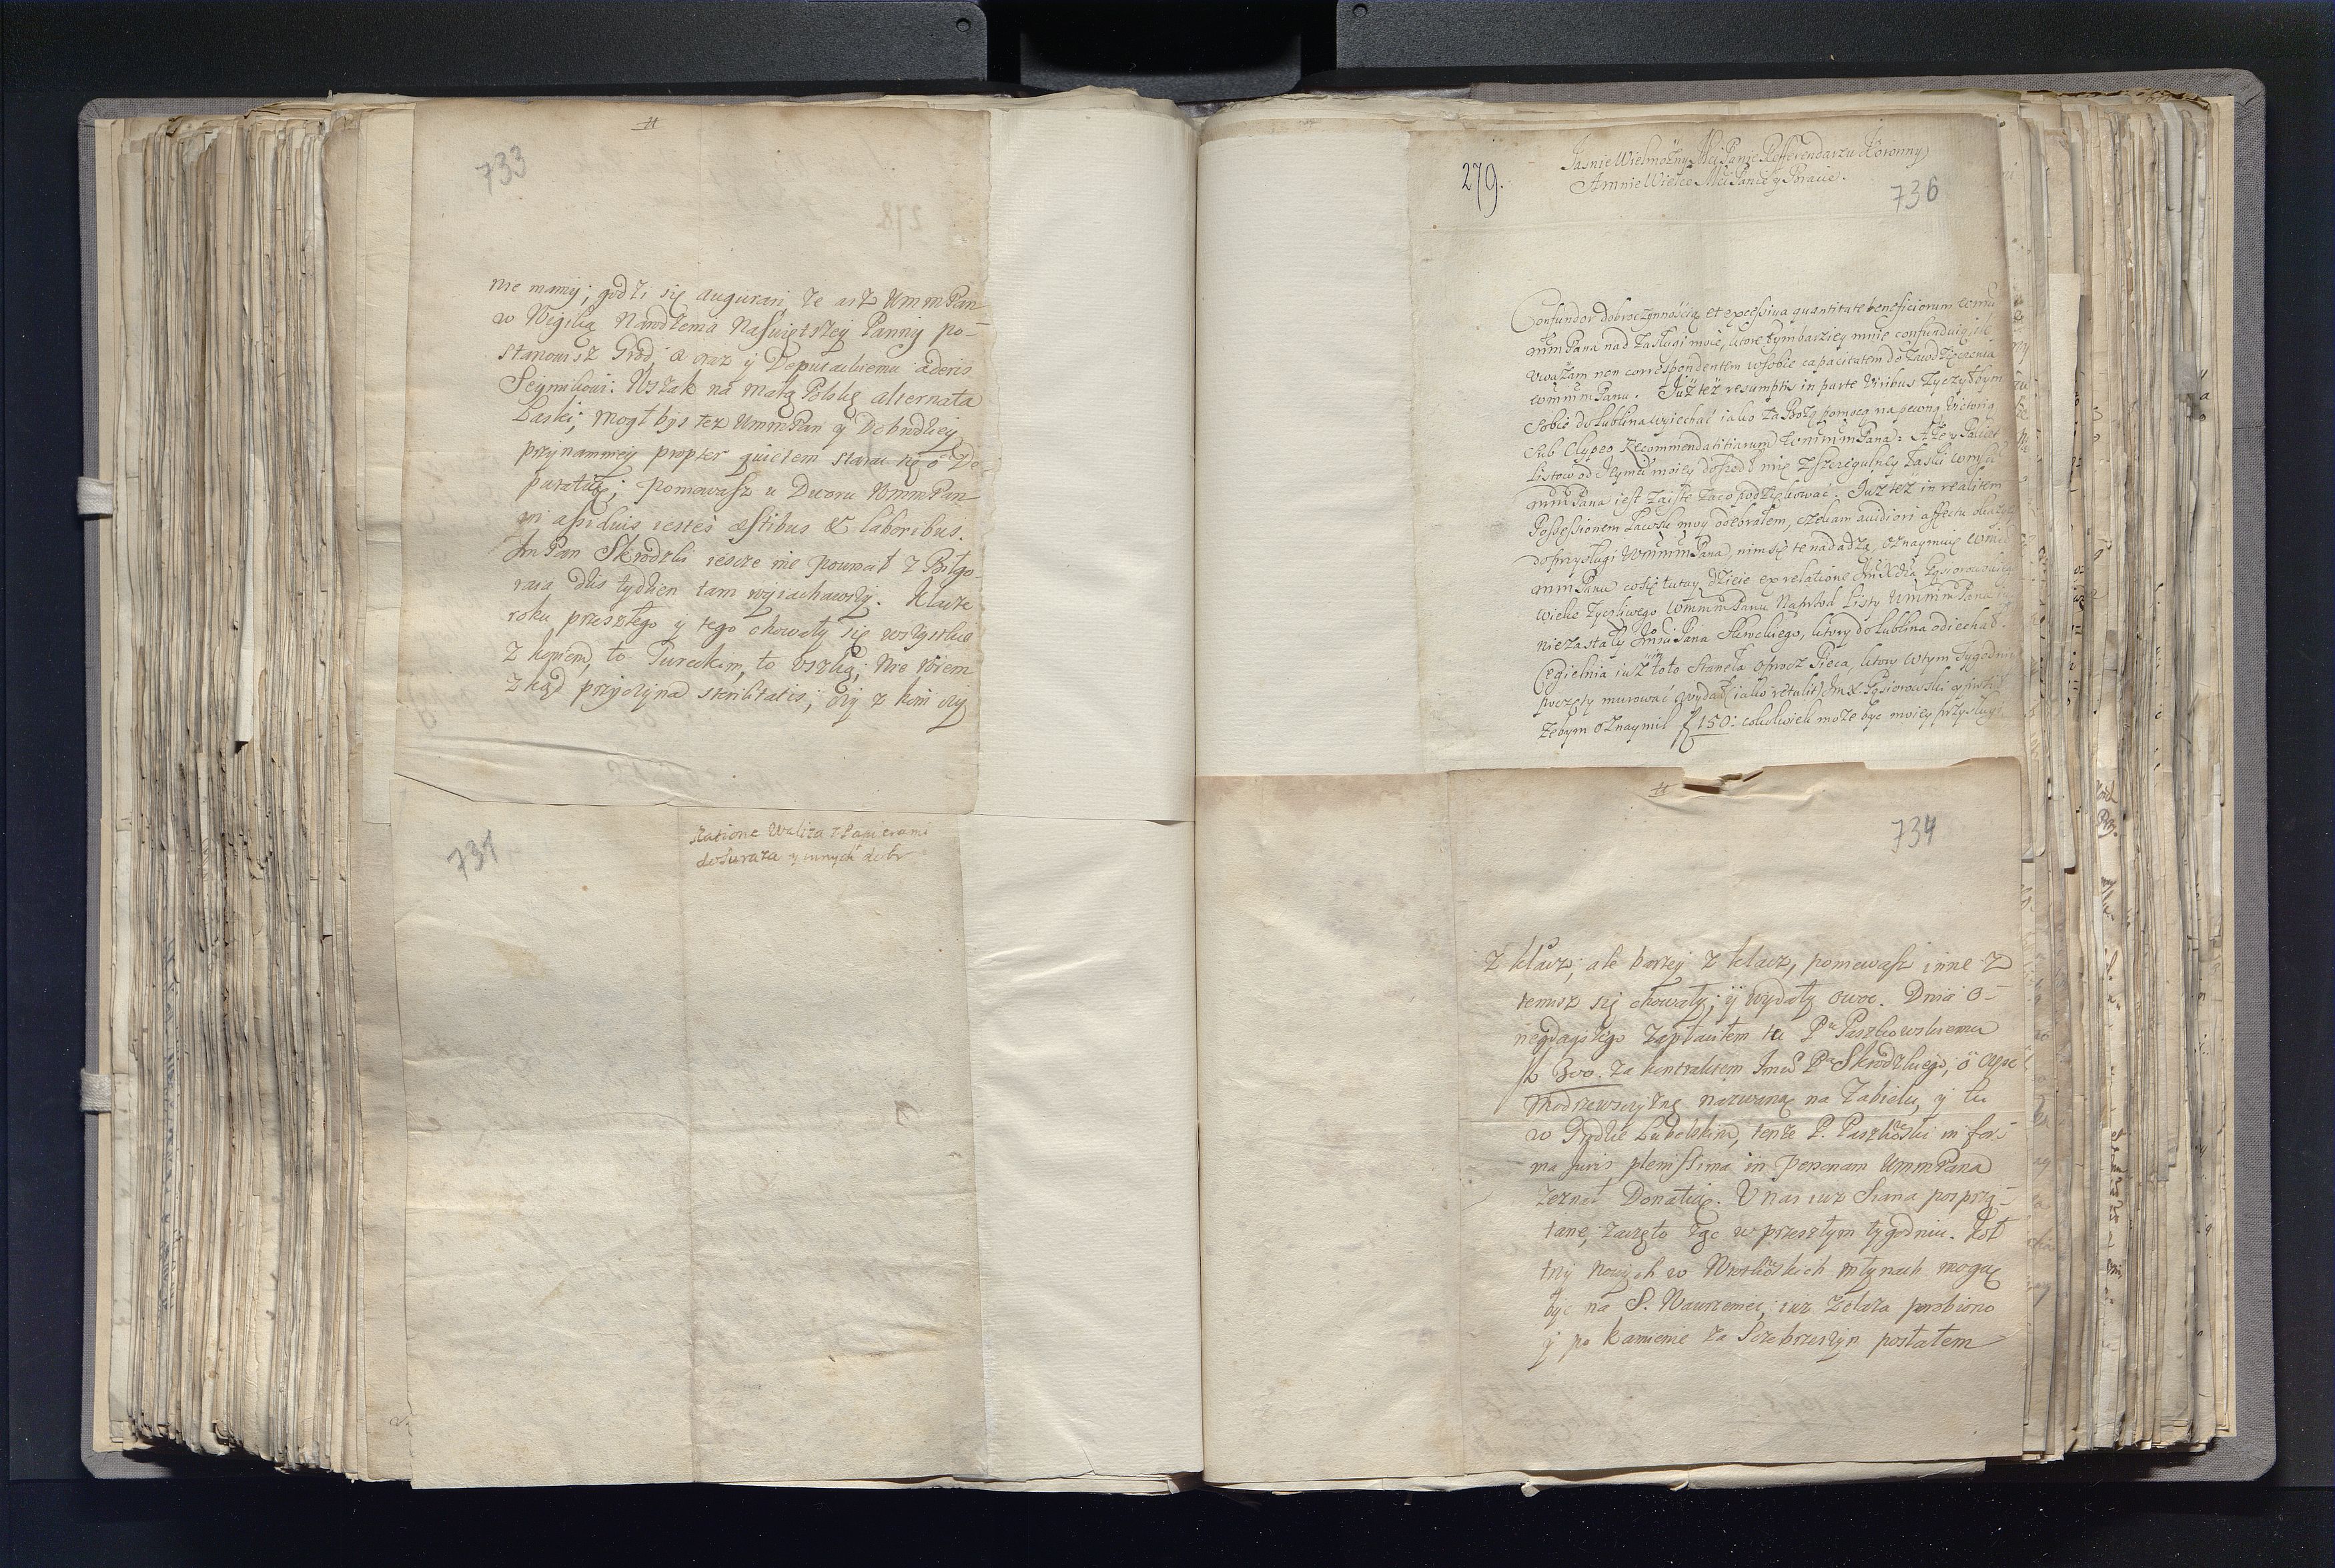 733
nie mamy; godzi się augurari, że asz UmmPan
w Wigilią Narodzenia Naswiętszey Panny po-
stanowisz Grod, a oraz y Deputackiemu aderis
Seymikowi: Wszak na Małą Polskę alternata
Laski; mogł byś tez UmmPan y Dobrodziey
przynamniey propter quietem starac się o De-
putatią; poniewasz u Dworu UmmPan
assiduis iesteś æstibus & laboribus.
ImPan Skrodzki iescze nie powrocił z Biłgo-
raia dziś tydzien tam wyiachawszy. Klacze
roku preszłego y tego chowały się wszystkie
z koniem, to Tureckim, to; nie wiem
z kąd przyczyna sterilitatis; czy z koni czy
731
Ratione Waliza z Papierami
y innych dobr
279.
736
Jasnie Wielmożny Mci Panie Refferendarzu Koronny
A mnie Wielce Mci Panie y Bracie.
Confundor dobroczynnością et excessiva quantitate beneficiorum Wmm
mmPana nad zasługi moie, ktore tym barziey mnie confunduią, ile
uważam non correspondentem w sobie capacitatem do zawdzięczenia
WmmmPanu. Już też resumptis in parte viribus życzyłbym
sobie do Lublina wyiechać iako za Bożą pomocą na pewną victorią
sub Clypeo Recommendatitiarum WmmmPana: A że y Pakiet
Listow od Jeymci moiey doszedł mię z szczegulney łaski Wm
mmPana iest zaiste za co podziękować. Już tez in realitem
Possessionem odebrałem, czekam audiori affectu okazyi
do przysługi WmmmPana, nim się te nadadzą, oznaymuię Wm
mmPanu co się tutay dzieie ex relatione ImXdza Gąsiorowskiego
wielce życzliwego WmmmPanu Naprzod Listy WmmmPana
nie zastały ImciPana Sławskiego, ktory do Lublina odiechał.
Cegielnia iuż in toto staneła oprocz Pieca, ktory w tym tygodniu
poczęty murować wydał iako retulit ImX. Gąsiorowski y prosił
żebym oznaymił f 150: cokolwiek może bydz moiey przysługi
734
z klacz; ale barzey z klacz, poniewasz inne z
temisz się chowały; y wydały owoc. Dnia o-
negdayszego zapłaciłem tu Pu Paszkowskiemu
f 300. za kontraktem Imci Pa Skrodzkiego, o częsc
Modrzewczyzną nazwaną na Zabielu, y tu
w Grodzie Lubelskim, tenze P. Paszkowski in for-
ma juris plenissima in Personam UmmPana
zeznał Donatią. U nas iuz siana posprzą-
tane, zaczęto żąc w preszłym tygodniu. Kot
trzy nowych w młynach mogą
byc na S. Wawrzeniec; iuz żelaza porobiono
y po kamienie za Sczebrzeszyn posłałem